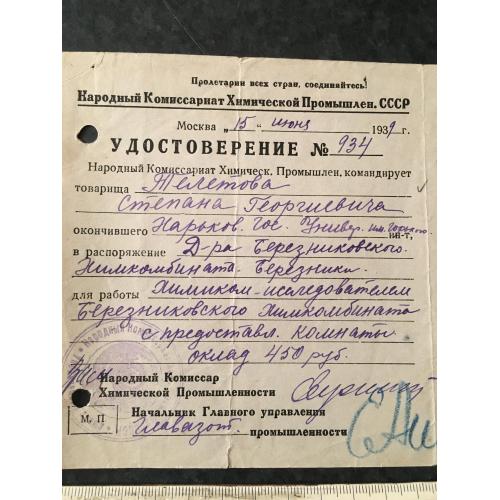 Пролетарии всех стран, соединяйтесь!
Народный Комиссариат Химической Промышлен. СССР
Москва „15“ июня 1939 г.
УДОСТОВЕРЕНИЕ № 934
Народный Комиссариат Химическ. Промышлен, командирует
товарища Телетова
Степана Георгиевича
окончившего Харьков. Гос. Универ. им. Горького ин-т,
в распоряжение Д-ра Березниковского
Химкомбината. Березники.
для работы Химиком-исследователем
Березниковского Химкомбината
с предоставл. комнаты
оклад 450 руб.
Народный Комиссар
Химической Промышленности
М. П
Начальник Главного управления
Главазот. промышленности
НАРОДНЫЙ